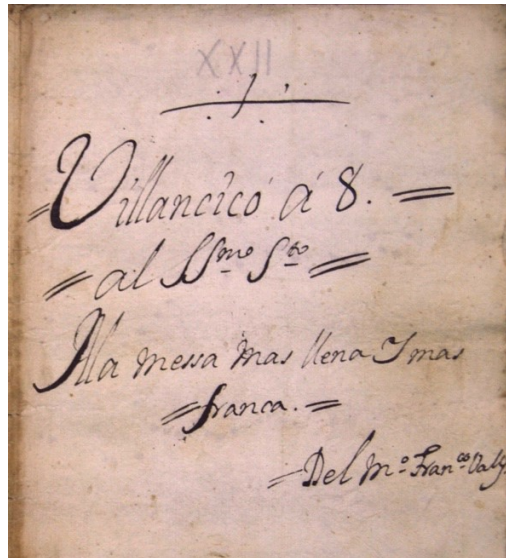 XXII
Villancico á 8.
al SSmo Sto
Alla messa mas llena Y mas
franca.
Del Mo. Franco Valls